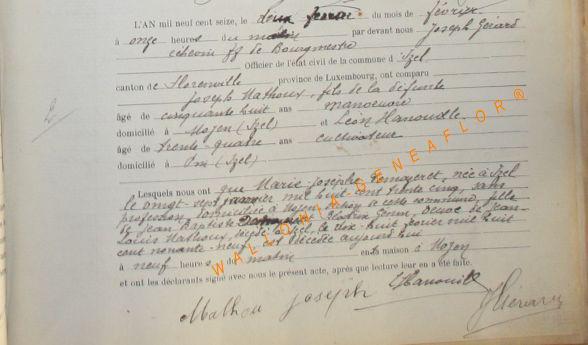 L'AN mil neuf cent seize, le deux février du mois de février
à onze heures du matin par devant nous Joseph Gérard
échevin ff de Bourgmestre
Officier de l'état civil de la commune d'Izel
canton de Florenville province de Luxembourg, ont comparu
Joseph Mathoux, fils de la défunte
âgé de cinquante huit ans manoeuvre
domicilié à Moyen (Izel) et Léon Hanouille
âgé de trente-quatre ans cultivateur
domicilié à (Izel)
Lesquels nous ont que Marie-Josèphe née à Izel
le vingt-sept janvier mil huit cent trente cinq, sans
profession, domiciliée à Moyen, section de cette commune, fille
de Jean Baptiste veuve de Jean
Louis Mathoux, décédé à Izel, le dix-huit février mil huit
cent nonante-neuf, est décédée aujourd'hui
à neuf heures du matin en sa maison à Moyen
et ont les déclarants signé avec nous le présent acte, après que lecture leur en a été faite.
Mathou Joseph LHanouille JGérard
WALLONIA GENEAFLOR ®